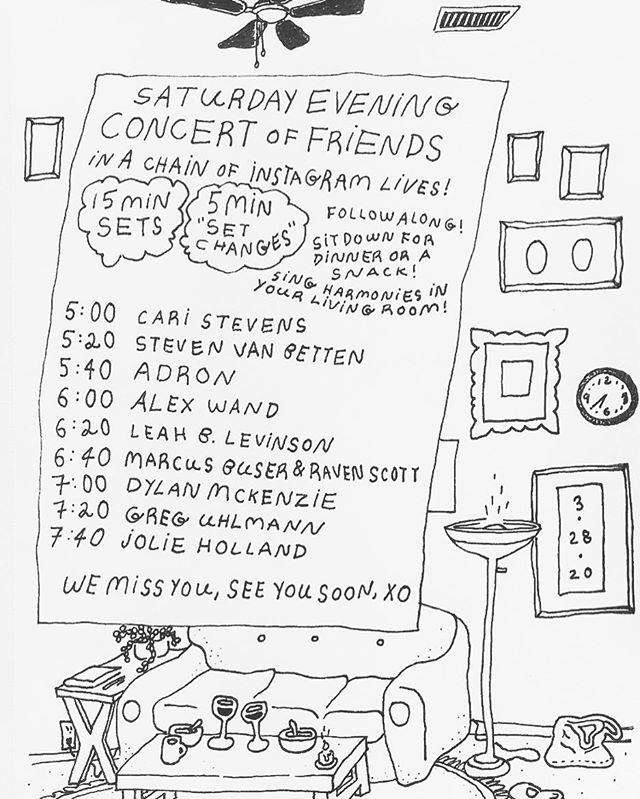 SATURDAY EVENING
CONCERT OF FRIENDS
iN A CHAIN OF iNSTAGRAM LIVES!
15 MiN
SETS
5 MiN
"SET
CHANGES"
FOLLOW ALONG!
SIT DOWN FOR
DINNER OR A
SNACK!
SING HARMONIES IN
YOUR LIVING ROOM!
5:00 CARI STEVENS
5:20 STEVEN VAN BETTEN
5:40 ADRON
6:00 ALEX WAND
6:20 LEAH B. LEVINSON
6:40 MARCUS BUSER & RAVEN SCOTT
7:00 DYLAN MCKENZIE
7:20 GREG UHLMANN
7:40 JOLIE HOLLAND
WE MISS YOU, SEE YOU SOON, XO
12
9 3
6
3
·
28
·
20